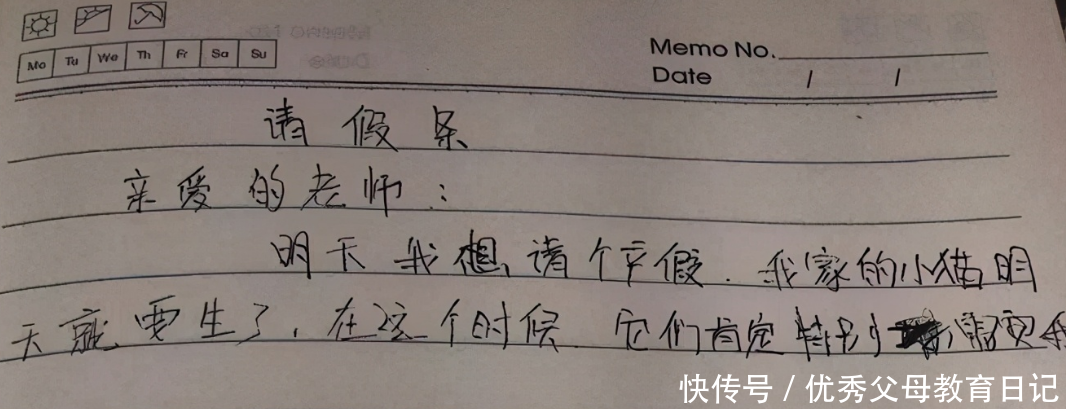 Mo Tu We Th Fr Sa Su
Memo No.
Date / /
请假条
亲爱的老师：
明天我想请个产假. 我家的小猫明
天就要生了, 在这个时候. 它们肯定特别
快传号 / 优秀父母教育日记